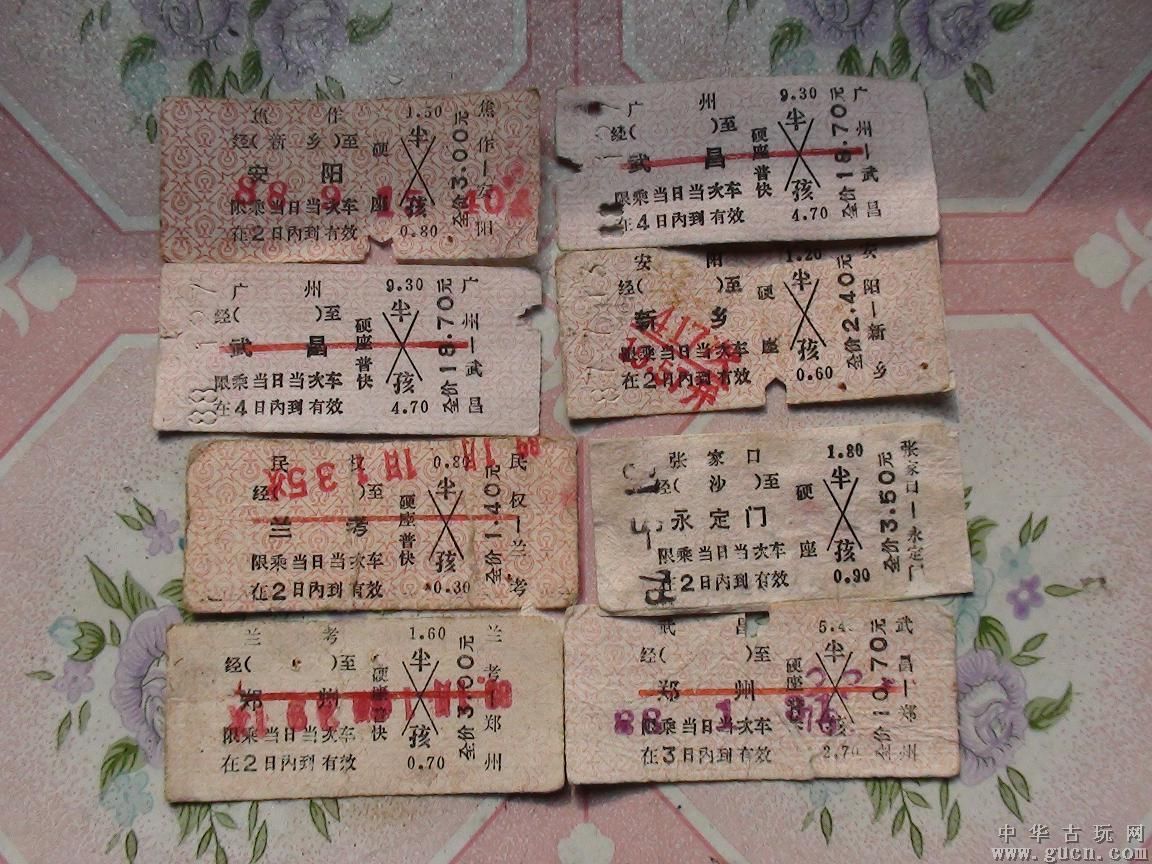 焦作 1.50
经(新乡)至 硬 半
安阳
88 9 1
限乘当日当次车 座 孩
在2日内到有效 0.80
全价3.00元
焦作—安阳
广州 9.30
经( )至 硬座普快 半
武昌
限乘当日当次车 孩
在4日内到有效 4.70
全价18.70元
广州—武昌
广州 9.30
经( )至 硬座普快 半
武昌
限乘当日当次车 孩
在4日内到有效 4.70
全价18.70元
广州—武昌
安阳 1.20
经( )至 硬 半
新乡
417次
限乘当日当次车 座 孩
在2日内到有效 0.60
全价2.40元
安阳—新乡
民权 0.80
135次
经( )至 硬座普快 半
兰考
限乘当日当次车 孩
在2日内到有效 0.30
全价1.40元
民权—兰考
张家口 1.80
经(沙)至 硬 半
永定门
限乘当日当次车 座 孩
在2日内到有效 0.90
全价3.50元
张家口—永定门
兰考 1.60
经( )至 硬座普快 半
郑州
限乘当日当次车 孩
在2日内到有效 0.70
全价3.00元
兰考—郑州
武昌 5.4
经( )至 硬座 半
郑州
88 1
限乘当日当次车 孩
在3日内到有效 2.70
全价10.70元
武昌—郑州
中华古玩网
www.gucn.com